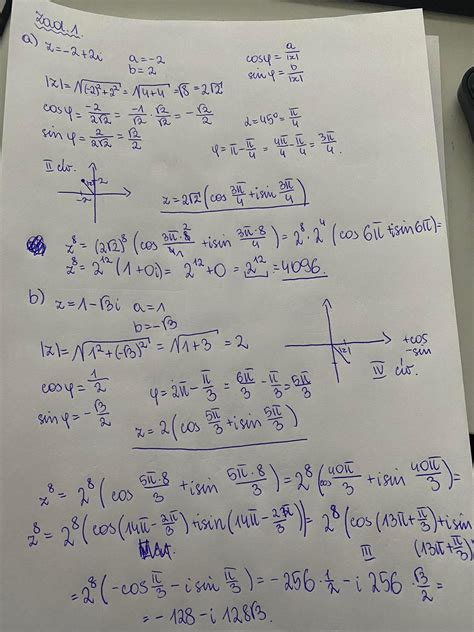 Zad.1.
a) z=-2+2i a=-2 cosφ=a/|z|
b=2 sinφ=b/|z|
|z|=√((-2)²+2²)=√(4+4)=√8=2√2
cosφ=-2/(2√2)=-1/√2·√2/√2=-√2/2 α=45°=π/4
sinφ=2/(2√2)=√2/2 φ=π-π/4=4π/4-π/4=3π/4.
II ćw.
z=2√2(cos 3π/4+isin 3π/4)
z⁸=(2√2)⁸(cos 3π·8/4+isin 3π·8/4)=2⁸·2⁴(cos6π+isin6π)=
z⁸=2¹²(1+0i)=2¹²+0=2¹²=4096.
b) z=1-√3i a=1
b=-√3
|z|=√(1²+(-√3)²)=√(1+3)=2
+cos
-sin
IV ćw.
cosφ=1/2 φ=2π-π/3=6π/3-π/3=5π/3
sinφ=-√3/2
z=2(cos 5π/3+isin 5π/3)
z⁸=2⁸(cos 5π·8/3+isin 5π·8/3)=2⁸(cos 40π/3+isin 40π/3)=
z⁸=2⁸(cos(14π-2π/3)+isin(14π-2π/3))=2⁸(cos(13π+π/3)+isin
III (13π+π/3)
=2⁸(-cos π/3-isin π/3)=-256·1/2-i256·√3/2=
=-128-i128√3.